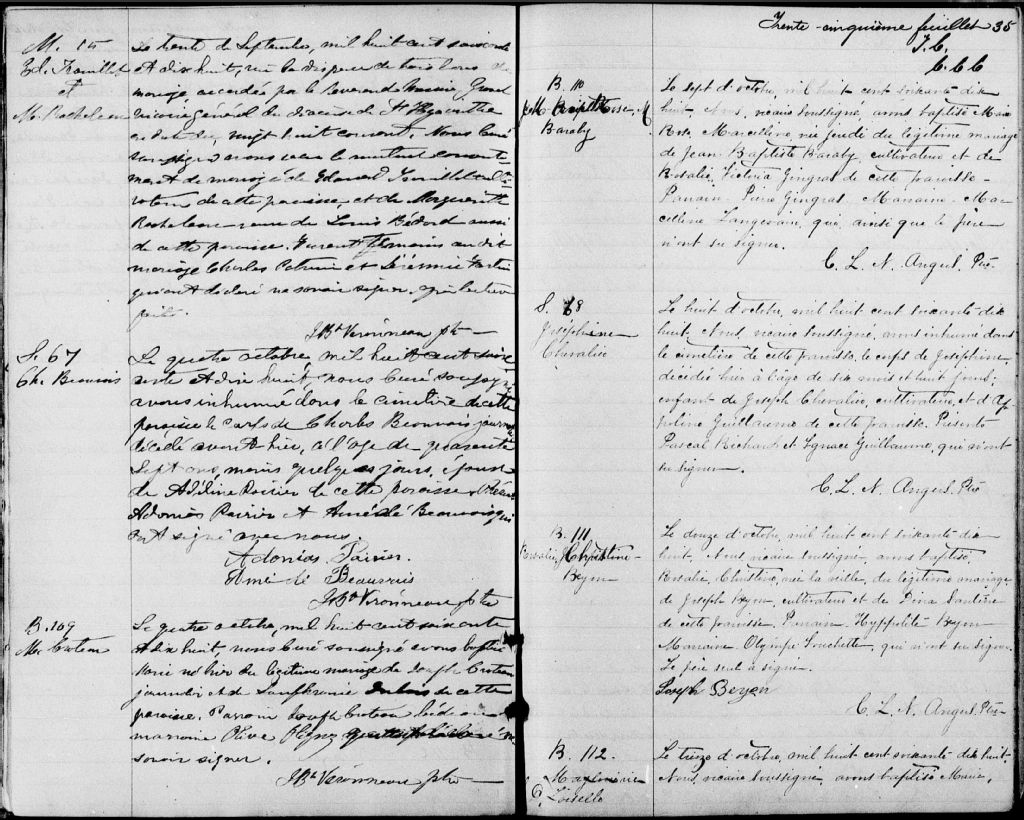 M. 15
Ed. Trouillet
et
M. Rocheleau
Le trente de Septembre, mil huit cent soixante
et dix huit, vu la dispense de trois bans de
mariage accordée par le Reverend Grand
Vicaire général du diocèse de St Hyacinthe
en date du vingt huit courant, Nous Curé
soussigné avons reçu le mutuel consente-
ment de mariage de Edouard Trouillet cul-
tivateur de cette paroisse, et de Marguerite
Rocheleau veuve de Louis Bédard aussi
de cette paroisse. Furent témoins au dit
mariage Charles et Jérémie
qui ont déclaré ne savoir signer. lecture
faite.
J Bt Véronneau ptre
S. 67
Ch. Beauvais
Le quatre octobre, mil huit cent soix-
ante et dix huit, nous Curé soussigné
avons inhumé dans le cimetière de cette
paroisse le corps de Charles Beauvais journ
décédé avant hier, à l'âge de quarante
sept ans, moins quelques jours, époux
de Adéline Poirier de cette paroisse. Présents
Adonias Poirier et Amédé Beauvais qui
ont signé avec nous.
Adonias Poirier.
Amédé Beauvais
J Bt Véronneau ptre
B. 109
M. Croteau
Le quatre octobre, mil huit cent soixante
et dix huit, nous Curé soussigné avons baptisé
Marie née hier du légitime mariage de Joseph Croteau
journalier et de Sophronie Dubois de cette
paroisse. Parrain Joseph Croteau
marraine Olive
savoir signer.
J Bt Véronneau ptre
Trente-cinquième feuillet 35
J. C.
C. C. C
B. 110
M. Rose, M
Baraby
Le sept d'octobre, mil huit cent soixante dix
huit, Nous, vicaire soussigné, avons baptisé Marie
Rose, Marcelline, née jeudi du légitime mariage
de Jean Baptiste Baraby, cultivateur et de
Rosalie, Victoria Gingras de cette paroisse-
Parrain, Pierre Gingras, Marraine, Mar-
celline Langevain, qui, ainsi que le père
n'ont su signer.
C. L. N. Angers, Ptre
S. 68
Joséphine
Chevalier
Le huit d'octobre, mil huit cent soixante-dix
huit, Nous, vicaire soussigné, avons inhumé dans
le cimetière de cette paroisse, le corps de Joséphine,
décédée hier à l'âge de six mois et huit jours,
enfant de Joseph Chevalier, cultivateur, et d'Ap-
poline Guillaume de cette paroisse. Présents
Pascal Richard et Ignace Guillaume, qui n'ont
su signer.
C. L. N. Angers, Ptre
B. 111
Rosalie, Christine-
Beyen
Le douze d'octobre, mil huit cent soixante-dix-
huit, Nous vicaire soussigné, avons baptisé,
Rosalie, Christine, née la veille, du légitime mariage
de Joseph Beyen, cultivateur et de Dina
de cette paroisse, Parrain, Hyppolite Beyen
Marraine, Olympe Souchette, qui n'ont su signer
Le père seul a signé.
Joseph Beyen
C. L. N. Angers, Ptre-
B. 112.
Loiselle
Le treize d'octobre, mil huit cent soixante dix huit-
Nous, vicaire soussigné, avons baptisé, Marie,